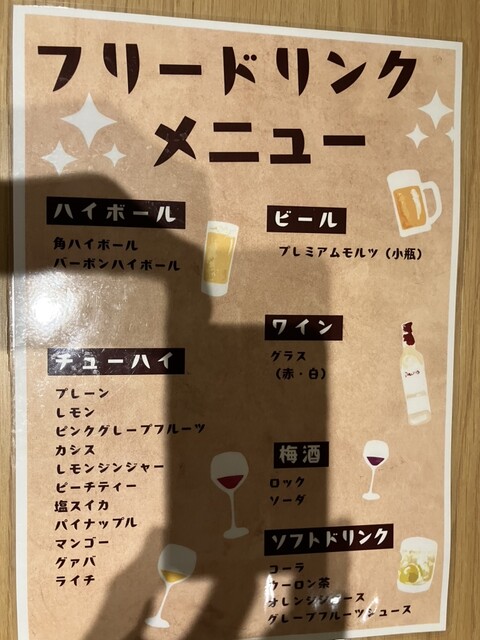 フリードリンク
メニュー
ハイボール
角ハイボール
バーボンハイボール
チューハイ
プレーン
レモン
ピンクグレープフルーツ
カシス
レモンジンジャー
ピーチティー
塩スイカ
パイナップル
マンゴー
グァバ
ライチ
ビール
プレミアムモルツ（小瓶）
ワイン
グラス
（赤・白）
梅酒
ロック
ソーダ
ソフトドリンク
コーラ
ウーロン茶
オレンジジュース
グレープフルーツジュース